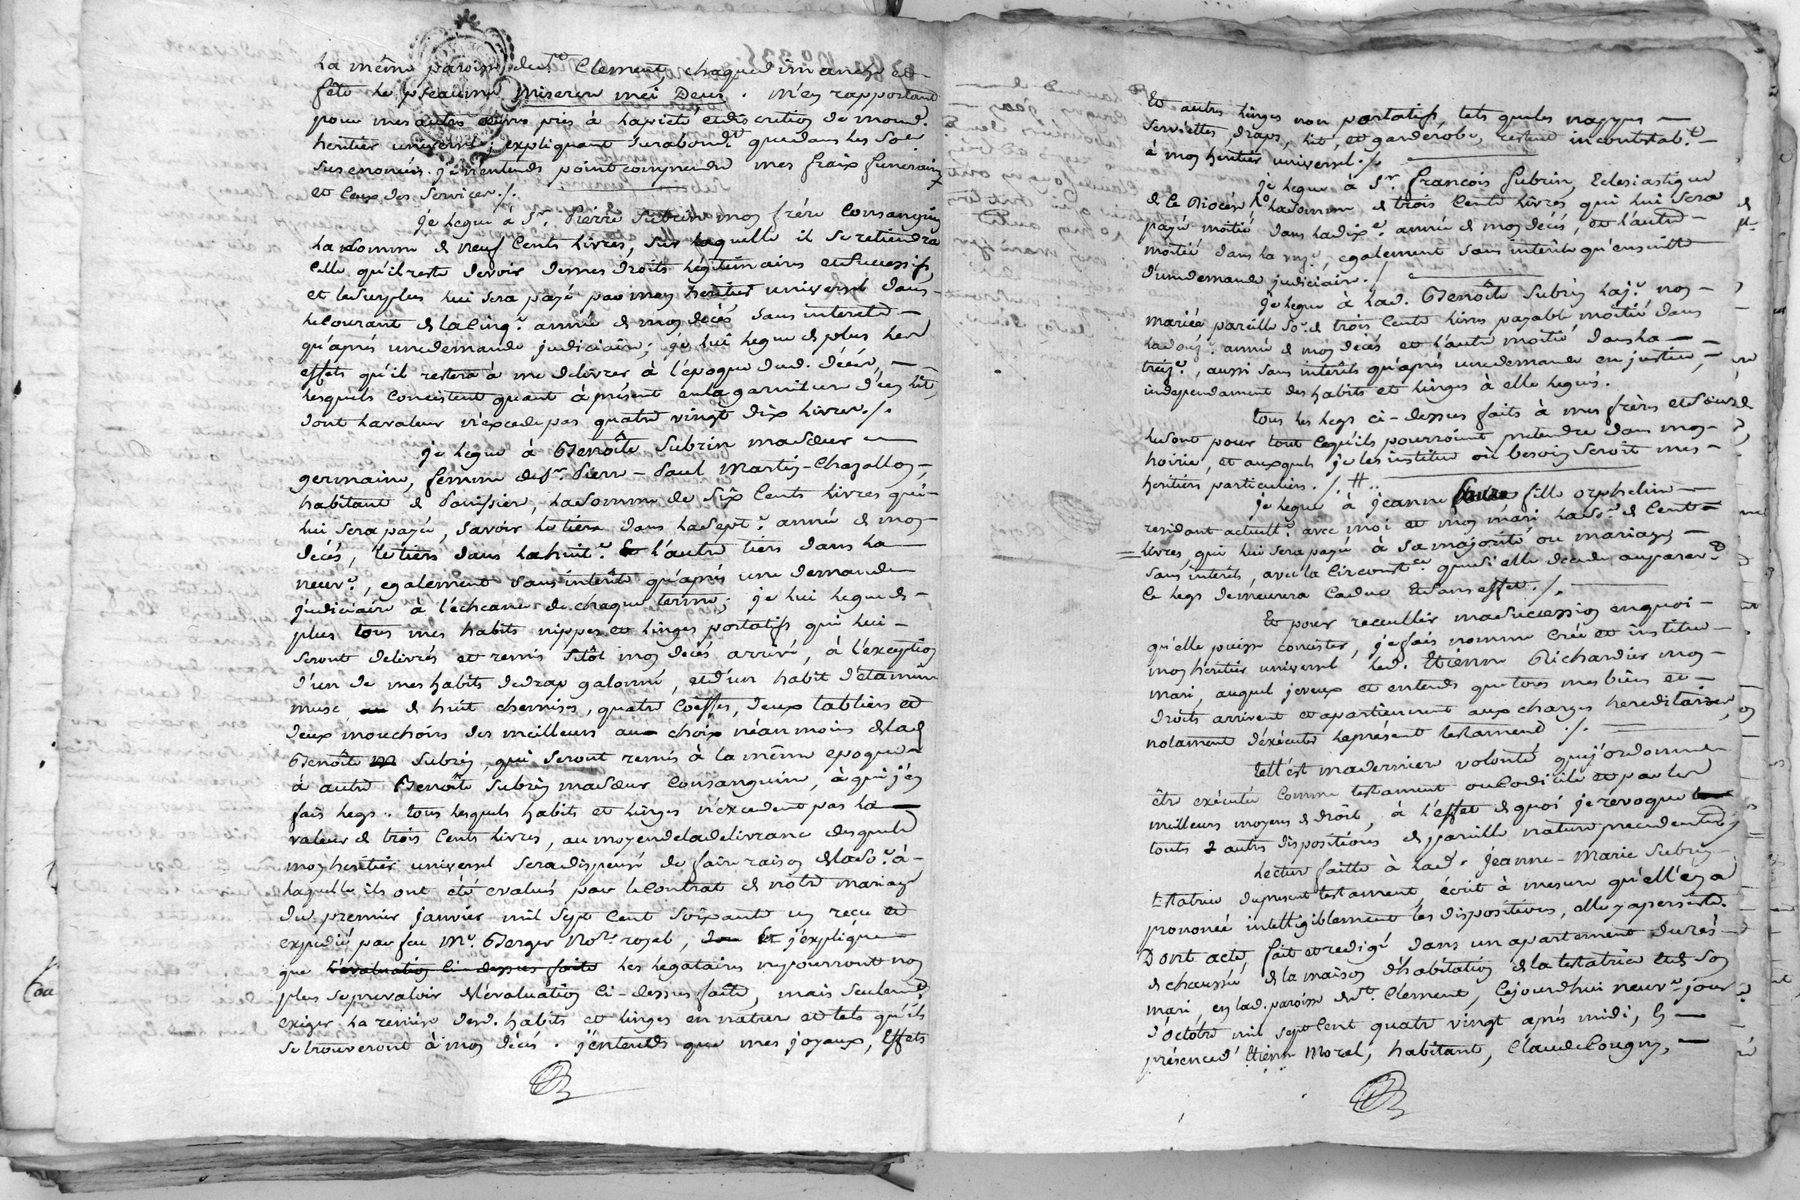 la même paroisse de St Clement, chaque dimanche et
fête le pseaume Miserere mei Deus. m'en rapportant
pour mes autres œuvres pies à la pieté et discretion de mond.
heritier universel; expliquant surabondt que dans les Soe
susenoncées je n'entends point comprendre mes fraix funeraires
et ceux des services ./.
je legue à Sr Pierre Subrin mon frère consanguin
la somme de neuf cents livres, sur laquelle il se retiendra
celle qu'il reste devoir de mes droits légitimaires et successifs,
et le surplus lui sera payé par mon heritier universel dans
le courant de la cinqe année de mon decés sans interets
qu'après une demande judiciaire; je lui legue de plus les
effets qu'il restera à me delivrer à l'époque dud. décés,
lesquels consistent quant à présent en la garniture d'un lit,
dont la valeur n'excede pas quatre vingt dix livres ./.
je legue à Benoîte Subrin ma sœur
germaine, femme de Sr Pierre-Paul Martin-Chazallon,
habitant de Pouissier, la somme de six cents livres qui
lui sera payée, savoir le tiers dans la septe année de mon
décés, le tiers dans la huite et l'autre tiers dans la
neuve, egalement sans interêts qu'après une demande
judiciaire à l'écheance de chaque terme; je lui legue de
plus tous mes habits nippes et linges portatifs qui lui
seront delivrés et remis sitôt mon decés arrivé, à l'exception
d'un de mes habits de drap galonné, et d'un habit d'étamine
musc de huit chemises, quatre coeffes, deux tabliers et
deux mouchoirs des meilleurs au choix néanmoins de lad.
Benoîte Subrin, qui seront remis à la même epoque
à autre Benoîte Subrin ma sœur consanguine, à qui j'en
fais legs. tous lesquels habits et linges n'excedent pas la
valeur de trois cents livres, au moyen de la delivrance desquels
mon heritier universel sera dispensé de faire raison de la soe à
laquelle ils ont été evalués par le contrat de notre mariage
du premier janvier mil sept cent soixante un reçu et
expedié par feu Me Berger Nore royal, et j'explique
que l'evaluation ci-dessus faite les legataires ne pourront non
plus se prevaloir de l'évaluation ci-dessus faite, mais seulemt
exiger la remise desd. habits et linges en nature et tels qu'ils
se trouveront à mon décés. j'entends que mes joyaux, effets
et autres linges non portatifs, tels que les nappes
serviettes, draps, lit, et garderobe, restent incontestabt
à mon heritier universel ./.
je legue à Sr François Subrin, Eclesiastique
de ce Diocèse la somme de trois cents livres qui lui sera
payée moitié dans la dixe année de mon decés, et l'autre
moitié dans la onze, egalement sans interêts qu'ensuite
d'une demande judiciaire ./
je legue à lad. Benoîte Subrin laje non
mariée pareille soe de trois cents livres payable moitié dans
la douze année de mon decés et l'autre moitié dans la
treize, aussi sans interêts qu'après une demande en justice,
independament des habits et linges à elle legués.
tous les legs ci-dessus faits à mes frères et sœurs
le sont pour tout ce qu'ils pourroient pretendre dans mon
hoirie, et auxquels je les institue où besoin seroit mes
heritiers particuliers ./. #
je legue à jeanne fille orpheline
residant actuellt avec moi et mon mari la soe de cent
livres qui lui sera payée à sa majorité ou mariage
sans interêts, avec la circonstce que si elle decede auparavt
ce legs demeurera caduc et sans effet ./.
Et pour recueillir ma succession en quoi
qu'elle puisse consister, je fais nomme crée et institue
mon heritier universel led. Etienne Richardier mon
mari, auquel je veux et entends que tous mes biens et
droits arrivent et apartiennent aux charges hereditaires,
notament d'éxécuter le présent testament ./.
tell'est ma derniere volonté que j'ordonne
être exécutée comme testament ou codicile et par les
meilleurs moyens de droit, à l'effet de quoi je revoque
touts autres dispositions de pareille nature precedentes
Lecture faitte à lad. jeanne-Marie Subrin
testatrice du present testament écrit à mesure qu'ell'en a
prononcé intelligiblement les dispositions, elle y a persisté.
Dont acte, fait et redigé dans un apartement du rés
de chaussée de la maison d'habitation de la testatrice et de son
mari, en lad. paroisse de St Clement, cejourdhui neuve jour
d'octobre mil sept cent quatre vingt après midi, En
présence d'Etienne Morel, habitant, Claude Cougny,